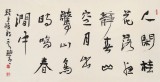 人閒桂
花落夜
静春山
空月出
驚山鳥
時鳴春
澗中